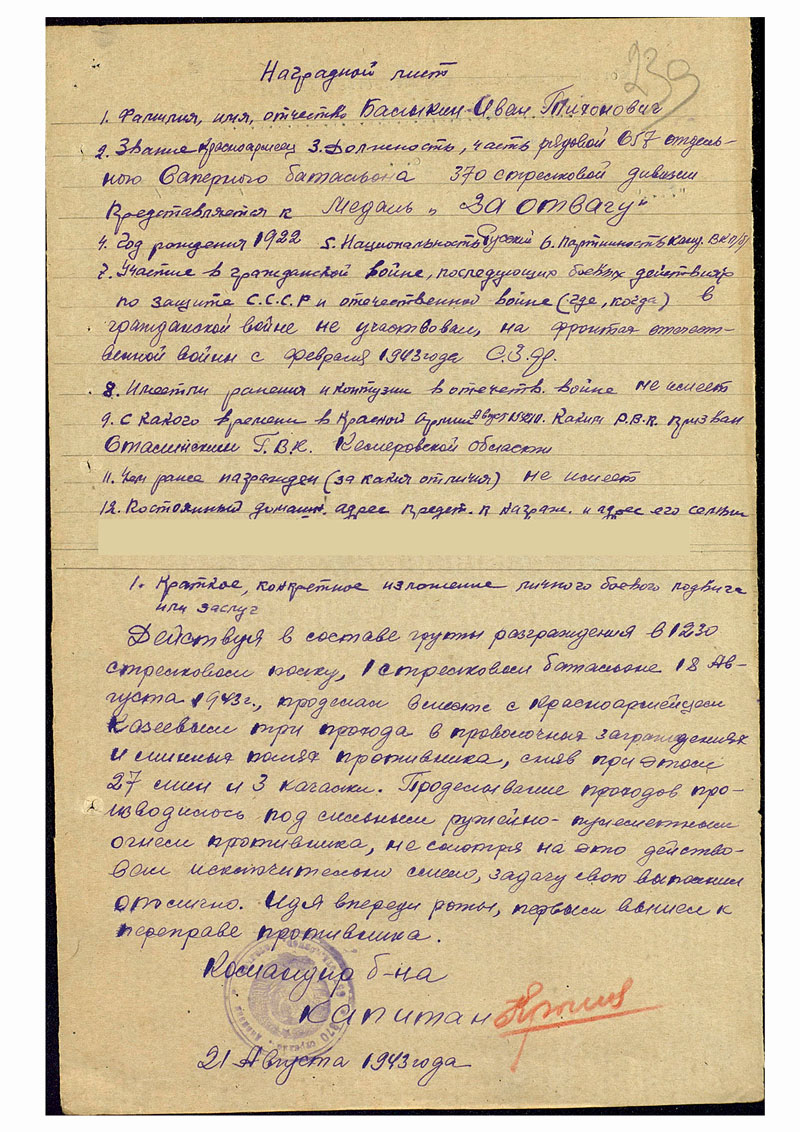 239
Наградной лист
1. Фамилия, имя, отчество Басыкин Иван Тихонович
2. Звание красноармеец 3. Должность, часть рядовой 657 отдель-
ного Саперного батальона 370 стрелковой дивизии
Представляется к Медаль „За отвагу"
4. Год рождения 1922 5. Национальность Русский 6. Партийность Канд. ВКП/б/
7. Участие в гражданской войне, последующих боевых действиях
по защите С.С.С.Р и отечественной войне (где, когда) в
гражданской войне не участвовал, на фронтах отечест-
венной войны с февраля 1943 года С.З.Фр.
8. Имеет ли ранения и контузии в отечеств. войне не имеет
9. С какого времени в Красной армии Август 10. Каким Р.В.К. призван
Сталинским Г.В.К. Кемеровской области
11. Чем ранее награжден (за какия отличия) не имеет
12. Постоянный домашн. адрес предст. к награж. и адрес его семьи
1. Краткое, конкретное изложение личного боевого подвига
или заслуг
Действуя в составе группы разграждения в 1230
стрелковом полку, 1 стрелковом батальоне 18 Ав-
густа 1943 г., проделал вместе с красноармейцем
Казеевым три прохода в проволочных заграждениях
и минных полях противника, сняв при этом
27 мин и 3 Проделывание проходов про-
изводилось под сильным ружейно-пулеметным
огнем противника, не смотря на это действо-
вал исключительно смело, задачу свою выполнил
отлично. Идя впереди роты, первым вышел к
переправе противника.
Командир б-на
Капитан
21 Августа 1943 года